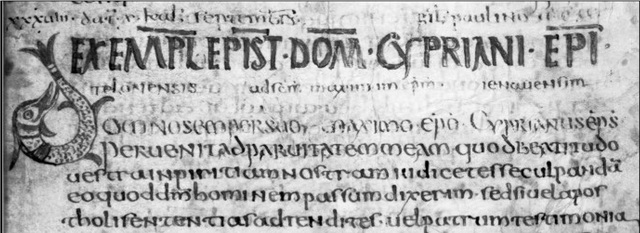 xxxiiii dat x kal septembris paulino
EXEMPL EPIST · DOM · CYPRIANI · EPI
TELONENSIS ad scm maximum epm IENAUENSIM
Domino semper suo maximo epo Cyprianus eps
Peruenit ad paruitatem meam quod beatitudo
uestra inpiritiam nostram iudicet esse culpandā
eo quod dm hominem passum dixerim · sed si uel apos
tholi sententias adtendites · uel patrum testimonia